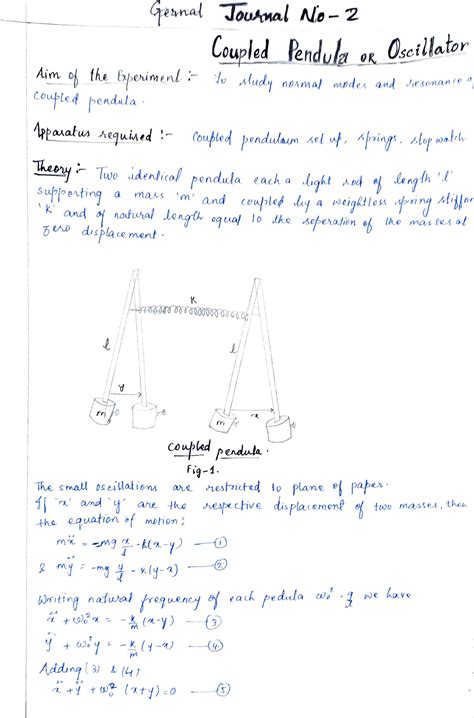 Gernal Journal No - 2
Coupled Pendula OR Oscillator
Aim of the Experiment :- To study normal modes and resonance of
coupled pendula.
Apparatus required :- Coupled pendulum set up, springs, stop watch.
Theory :- Two identical pendula each a light rod of length 'l'
supporting a mass 'm' and coupled by a weightless spring stiffne
'K' and of natural length equal to the seperation of the masses at
zero displacement.
K
l
l
y
x
m
m
coupled pendula.
Fig-1.
The small oscillations are restricted to plane of paper.
If 'x' and 'y' are the respective displacement of two masses, then
the equation of motion;
mẍ = -mg x/l - k(x-y) —①
& mÿ = -mg y/l - k(y-x) —②
Writing natural frequency of each pedula ω₀² - g/l we have
ẍ + ω₀²x = - k/m (x-y) —③
ÿ + ω₀²y = - k/m (y-x) —④
Adding (3) & (4)
ẍ + ÿ + ω₀² (x+y) = 0 —⑤